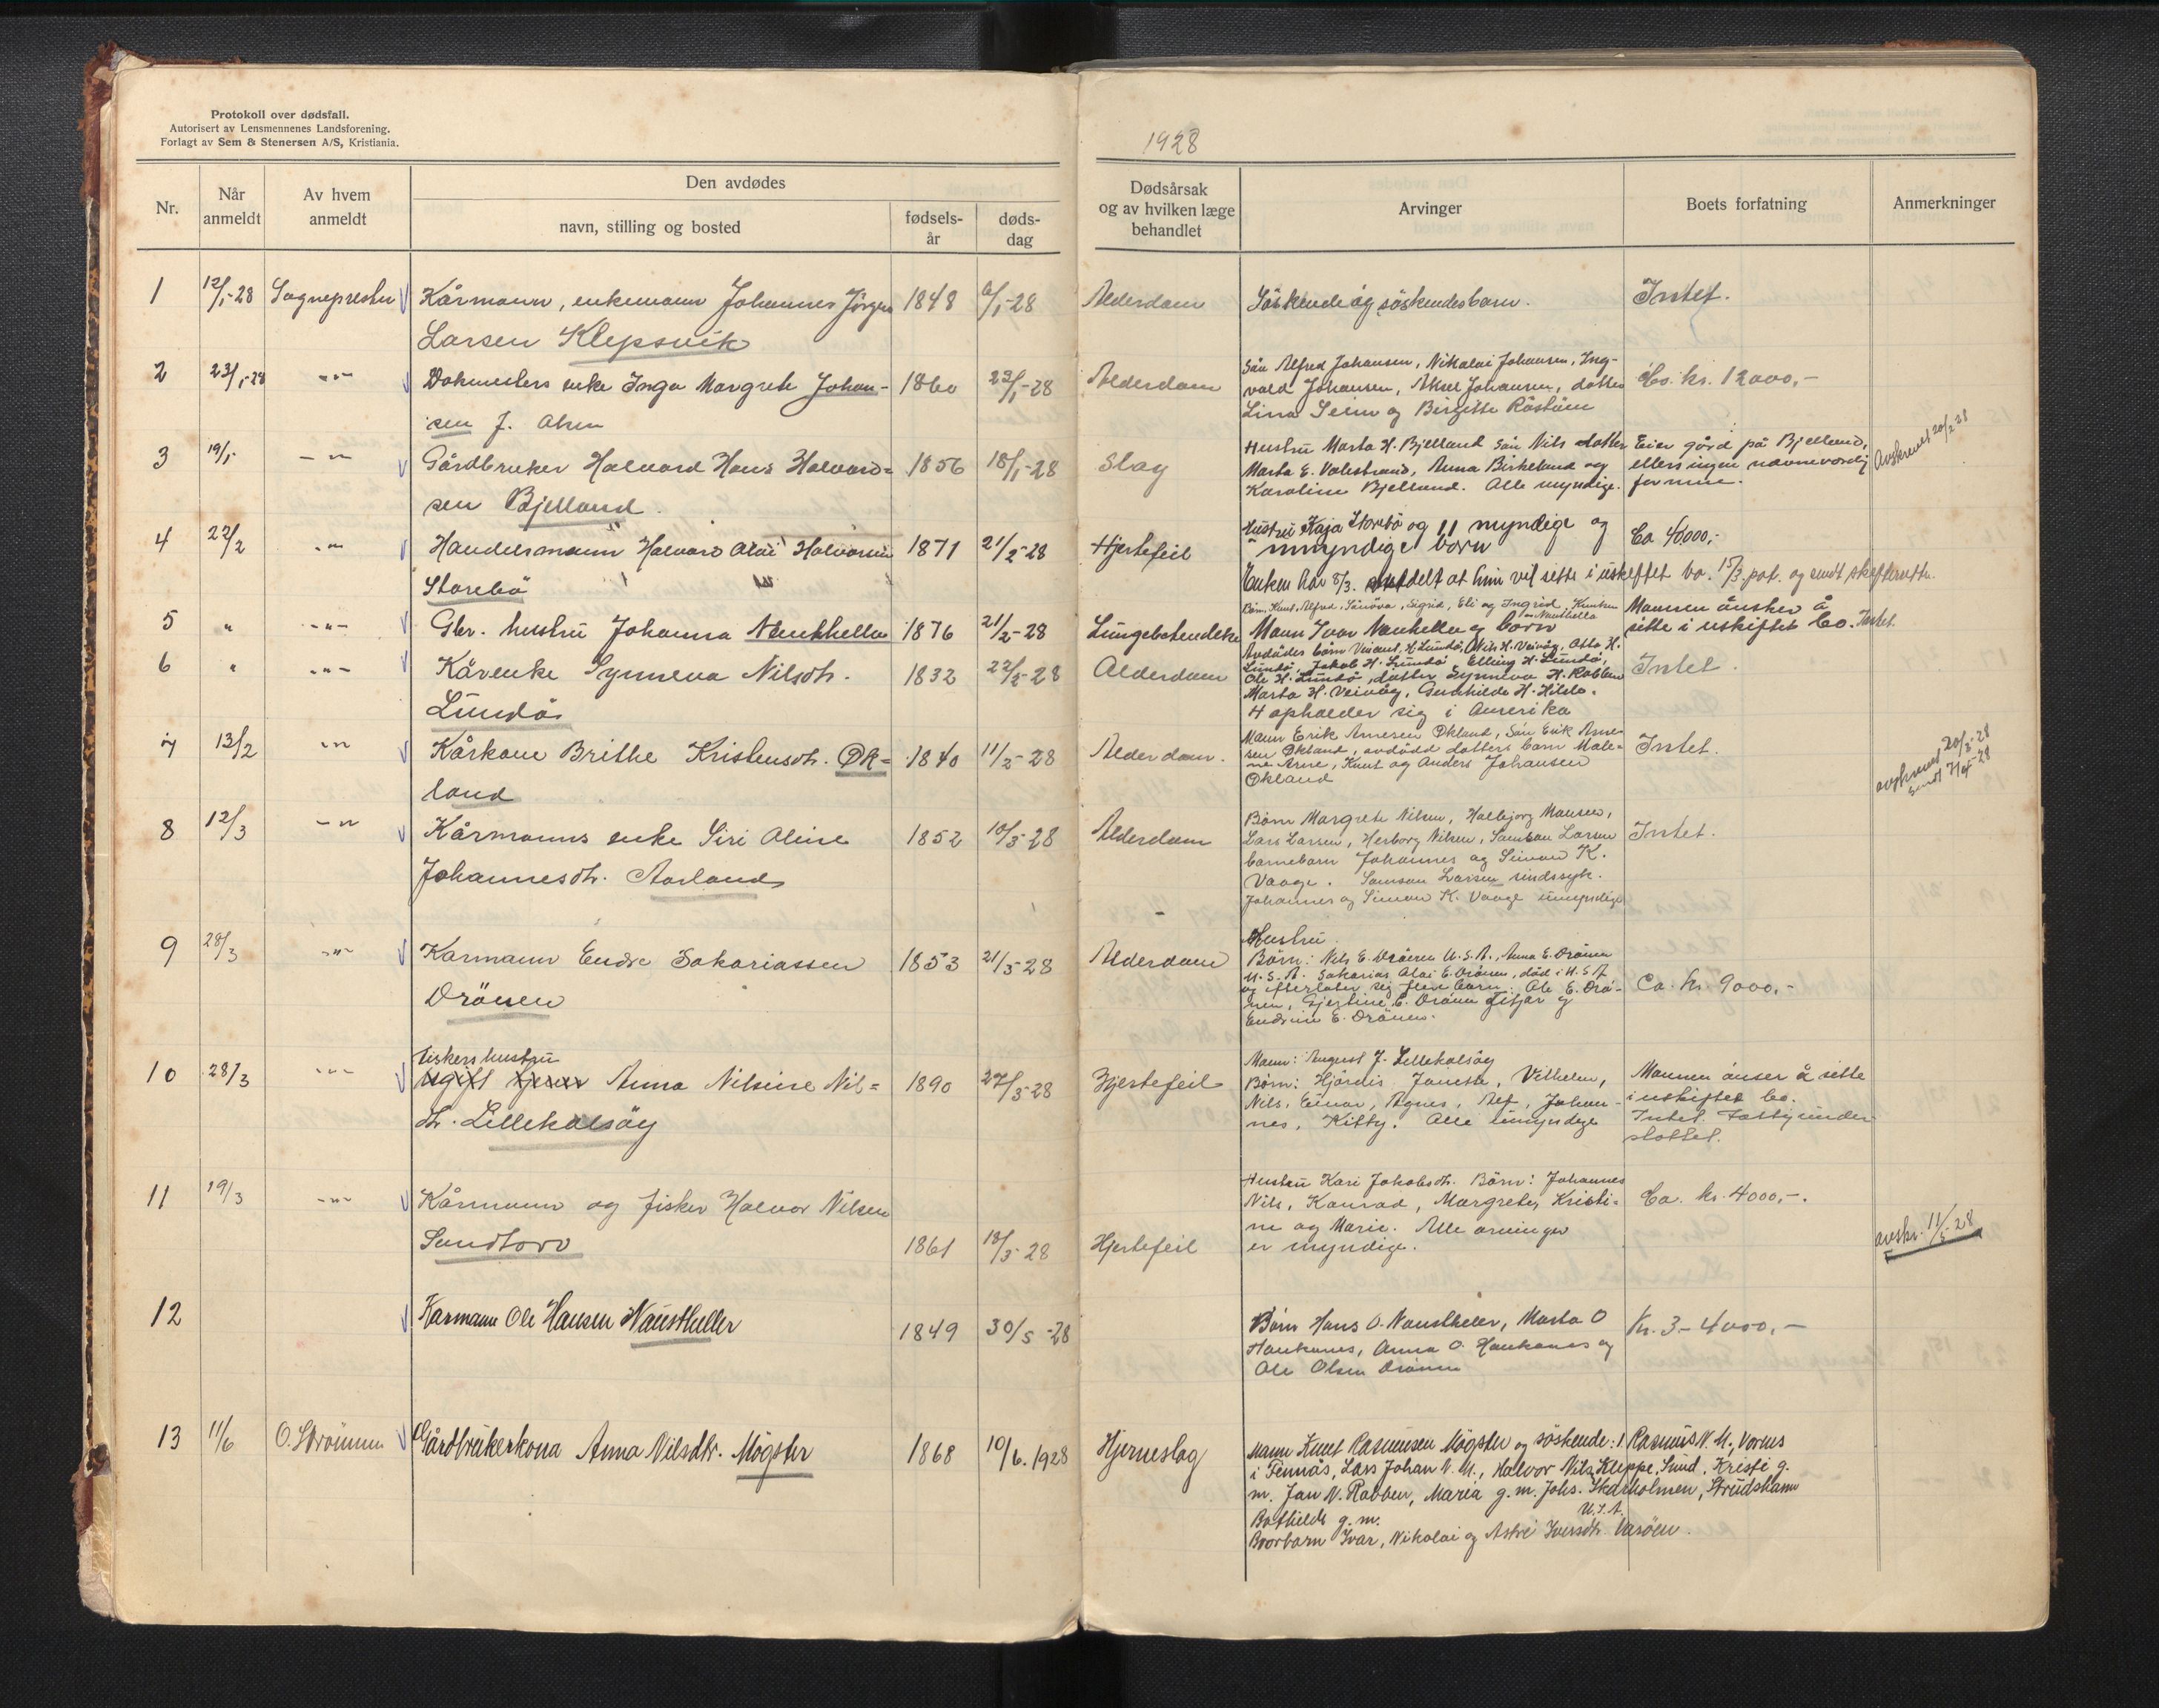 Protokoll over dødsfall.
Autorisert av Lensmennenes Landsforening.
Forlagt av Sem & Stenersen A/S, Kristiania.
1928
Nr.
Når anmeldt
Av hvem anmeldt
Den avdødes
navn, stilling og bosted
fødsels-år
døds-dag
Dødsårsak og av hvilken læge behandlet
Arvinger
Boets forfatning
Anmerkninger
1 12/1-28 Sognepresten Kårmann, enkemann Johannes Jørgen 1848 6/1-28 Alderdom Söskende og söskendesbarn. Intet.
Larsen Klepsvik
2 23/1-28 -"- enke Inga Margrete Johan- 1860 22/1-28 Alderdom
sen J. Olsen
Sön Alfred Johansen, Nikolai Johansen, Ing-
vald Johansen, Aksel Johansen, datter
Lina Seim og Birgitte
Ca. kr. 12000,-
3 19/1- -"- Gårdbruker Halvard Hans Halvard- 1856 18/1-28 Slag
sen Bjelland.
Hustru Marta H. Bjelland sön Nils datter
Marta E. Valestrand, Anna Birkeland og
Karoline Bjelland. Alle myndige.
Eier gård på Bjelland,
ellers ingen navneverdig
formue.
Avskrevet 20/2 28
4 22/2 -"- Handelsmann Halvard Olai Halvorsen 1871 21/2-28 Hjertefeil
Storebö
Hustru Kaja Storebö og 11 myndige og
umyndige börn
Ca 40000,-
Enken har 8/3. meddelt at hun vil sitte i uskiftet bo. 15/3. pat. og sendt skifteretten.
5 " -"- Gbr. hustru Johanna Nausthella 1876 21/2-28
Börn, Knut, Alfred, Sigrid, Eli og Ingrid,
Nausthella
Mann Ivar Nausthella og börn
Mannen önsker å
sitte i uskiftet bo. Intet.
6 " -"- Kårenke Synneva Nilsdtr. 1832 22/2-28 Alderdom
Lundö
Avdödes börn H. Lundö, Nils H. Veivåg, Otto H.
Lundö, Jakob H. Lundö, Elling H. Lundö,
Ole H. Lundö, datter Synneva H. Rabben
Marta H. Veivåg, H.
4 opholder sig i Amerika
Intet.
7 13/2 -"- Kårkone Brithe Kristensdtr. Øk- 1840 11/2-28 Alderdom.
land
Mann Erik Arnesen Økland, Sön Erik Arne-
sen Økland, avdödd datters barn Male-
ne Arne, Knut og Anders Johansen
Økland
Intet.
avskrevet 20/3-28
sendt 7/4-28
8 12/3 -"- Kårmanns enke Siri Oline 1852 10/3-28 Alderdom
Johannesdtr. Aarland
Börn Margrete Nilsen, Halbjörg Mansen,
Lars Larsen, Herborg Nilsen, Samson Larsen
barnebarn Johannes og Simon K.
Vaage. Samson Larsen sindssyk.
Johannes og Simon K. Vaage umyndige
Intet.
9 28/3 -"- Karmann Endre Sakariassen 1853 21/3-28 Alderdom
Drönen
Hustru.
Börn: Nils E. Drönen U.S.A., Anna E. Drönen
U.S.A. Sakarias Olai E. Drönen, död i U.S.A
og efterlater sig flere barn. Ole E. Drö-
nen, Gjertine E. Drönen Fitjar og
Endrine E. Drönen.
Ca. kr. 9000,-
10 28/3 -"- Fiskers hustru
Ugift Anna Nilsine Nil- 1890 27/3-28 Hjertefeil
dtr. Lillekalsöy
Mann: August J. Lillekalsöy
Börn: Hjördis, Vilhelm,
Nils, Einar, Agnes, Alf, Johan-
nes, Kitty. Alle umyndige
Mannen önser å sitte
i uskiftet bo.
Intet. Fattigunder-
stöttet.
11 19/3 -"- Kårmann og fisker Halvor Nilsen
Sandtorv 1861 18/3-28 Hjertefeil
Hustru Kari Jakobsdtr. Börn: Johannes
Nils, Konrad, Margrete, Kristi-
ne og Marie. Alle arvinger
er myndige.
Ca. kr. 4000,-.
avskr. 11/5-28
12 Karmann Ole Hansen Nausthellen 1849 30/5-28
Börn Hans O. Nausthellen, Marta O
Haukanes, Anna O. Haukanes og
Ole Olsen Drönen
Kr. 3-4000,-
13 11/6 O. Strömmen Gårdbrukerkona Anna Nilsdtr. Møgster 1868 10/6.1928 Hjerneslag
Mann Knut Rasmussen Møgster og söskende: 1. Rasmus N. M.,
i Lars Johan N. M., Halvor Nils Kleppe, Sund, Kristi g.
m. Jan N. Rabben, Maria g.m. Johs. Skarholmen,
Bothilde g.m. U.S.A.
Brorbarn Ivar, Nikolai og Iversdtr.